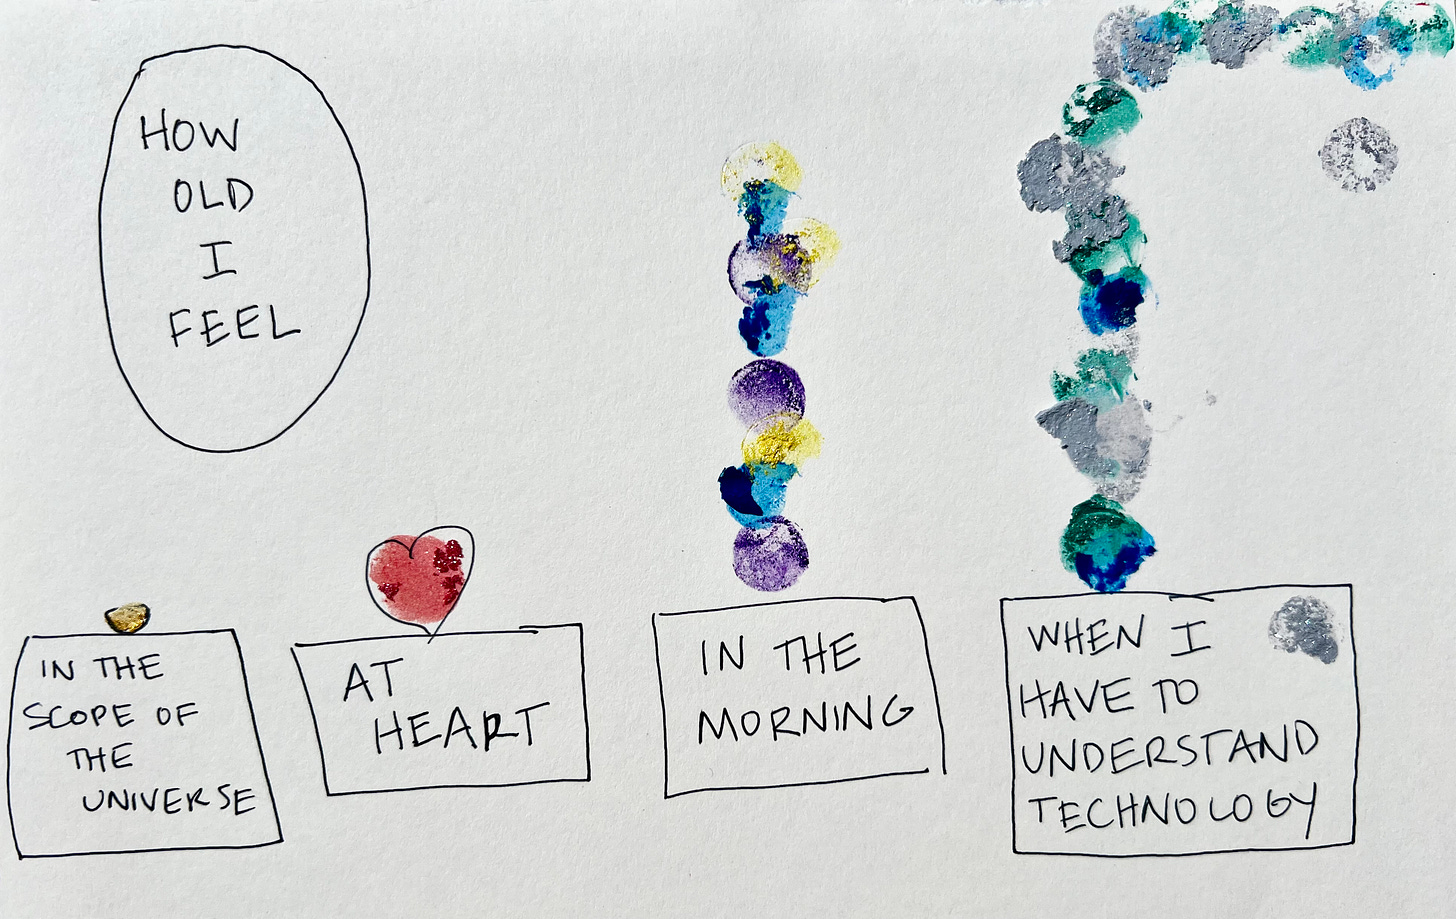 HOW
OLD
I
FEEL
IN THE
SCOPE OF
THE
UNIVERSE
AT
HEART
IN THE
MORNING
WHEN I
HAVE TO
UNDERSTAND
TECHNOLOGY